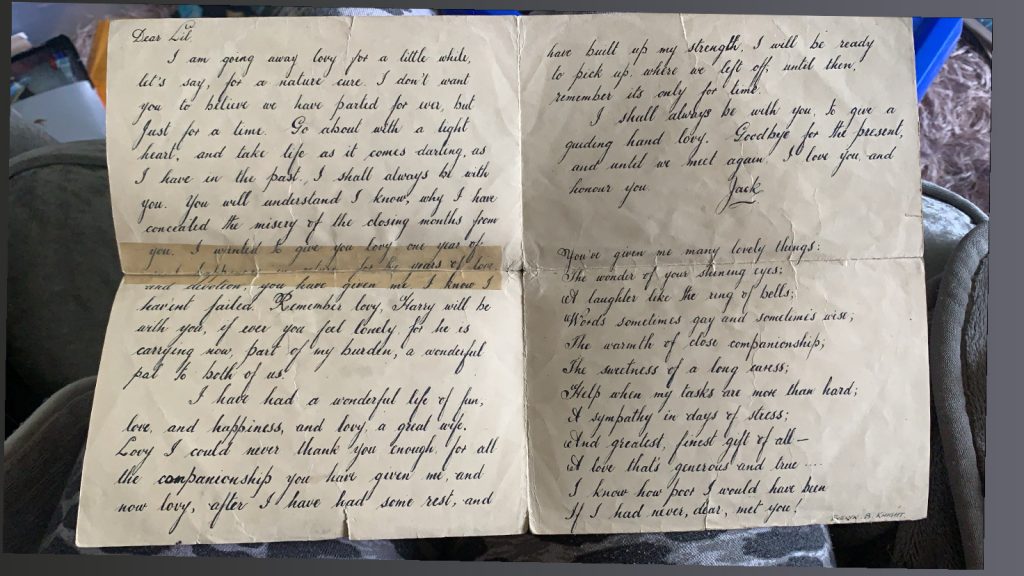 Dear Lil,
I am going away lovy for a little while,
let's say, for a nature cure. I don't want
you to believe we have parted for ever, but
Just for a time. Go about with a light
heart, and take life as it comes darling, as
I have in the past. I shall always be with
you. You will understand I know, why I have
concealed the misery of the closing months from
you. I wanted to give you lovy one year of
for the years of love
and devotion, you have given me. I know I
hav'ent failed. Remember lovy, Harry will be
with you, if ever you feel lonely, for he is
carrying now, part of my burden, a wonderful
pal to both of us.
I have had a wonderful life of fun,
love, and happiness, and lovy, a great wife.
Lovy I could never thank you enough, for all
the companionship you have given me, and
now lovy, after I have had some rest, and
have built up my strength, I will be ready
to pick up, where we left off, until then,
remember its only for time.
I shall always be with you, to give a
guiding hand lovy. Goodbye for the present,
and until we meet again, I love you, and
honour you.
Jack
You've given me many lovely things:
The wonder of your shining eyes;
A laughter like the ring of bells;
Words sometimes gay and sometimes wise;
The warmth of close companionship;
The sweetness of a long caress;
Help when my tasks are more than hard;
A sympathy in days of stress;
And greatest, finest gift of all—
A love that's generous and true ....
I know how poor I would have been
If I had never, dear, met you!
B. KNIGHT